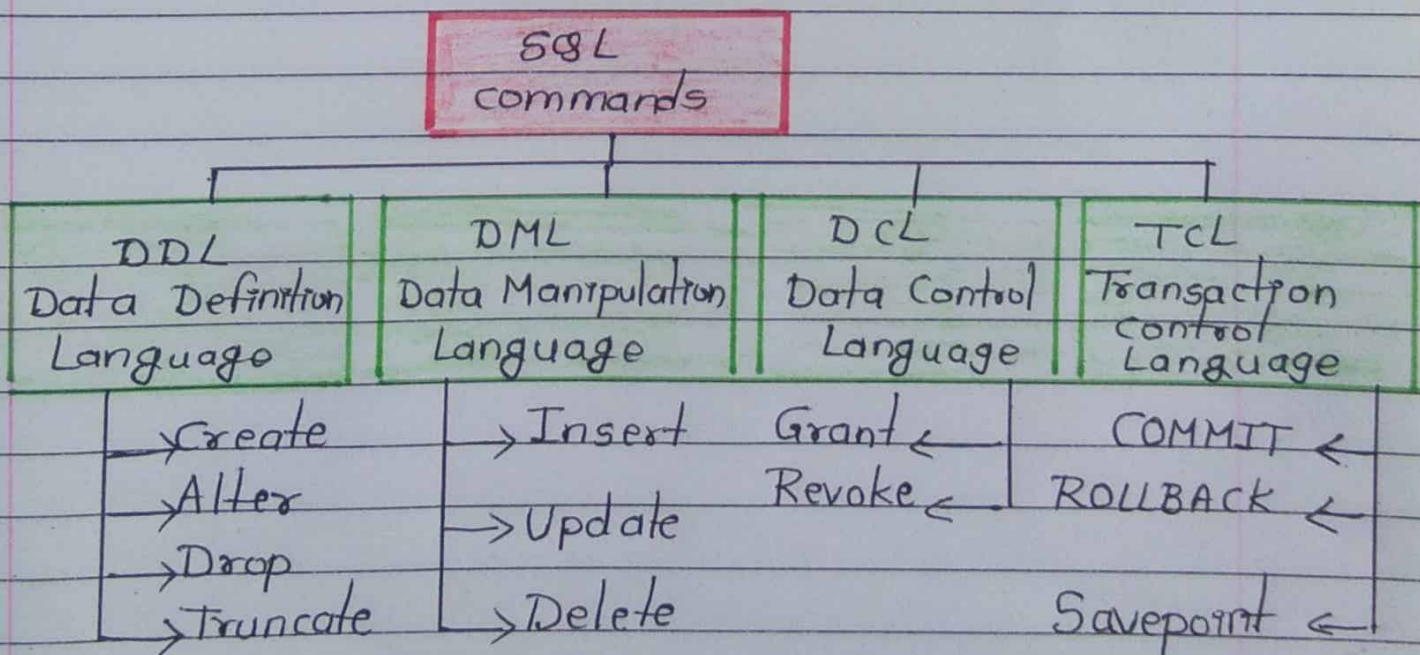 SQL
commands
DDL
Data Definition
Language
DML
Data Manipulation
Language
DCL
Data Control
Language
TCL
Transaction
control
Language
Create
Alter
Drop
Truncate
Insert
Update
Delete
Grant
Revoke
COMMIT
ROLLBACK
Savepoint